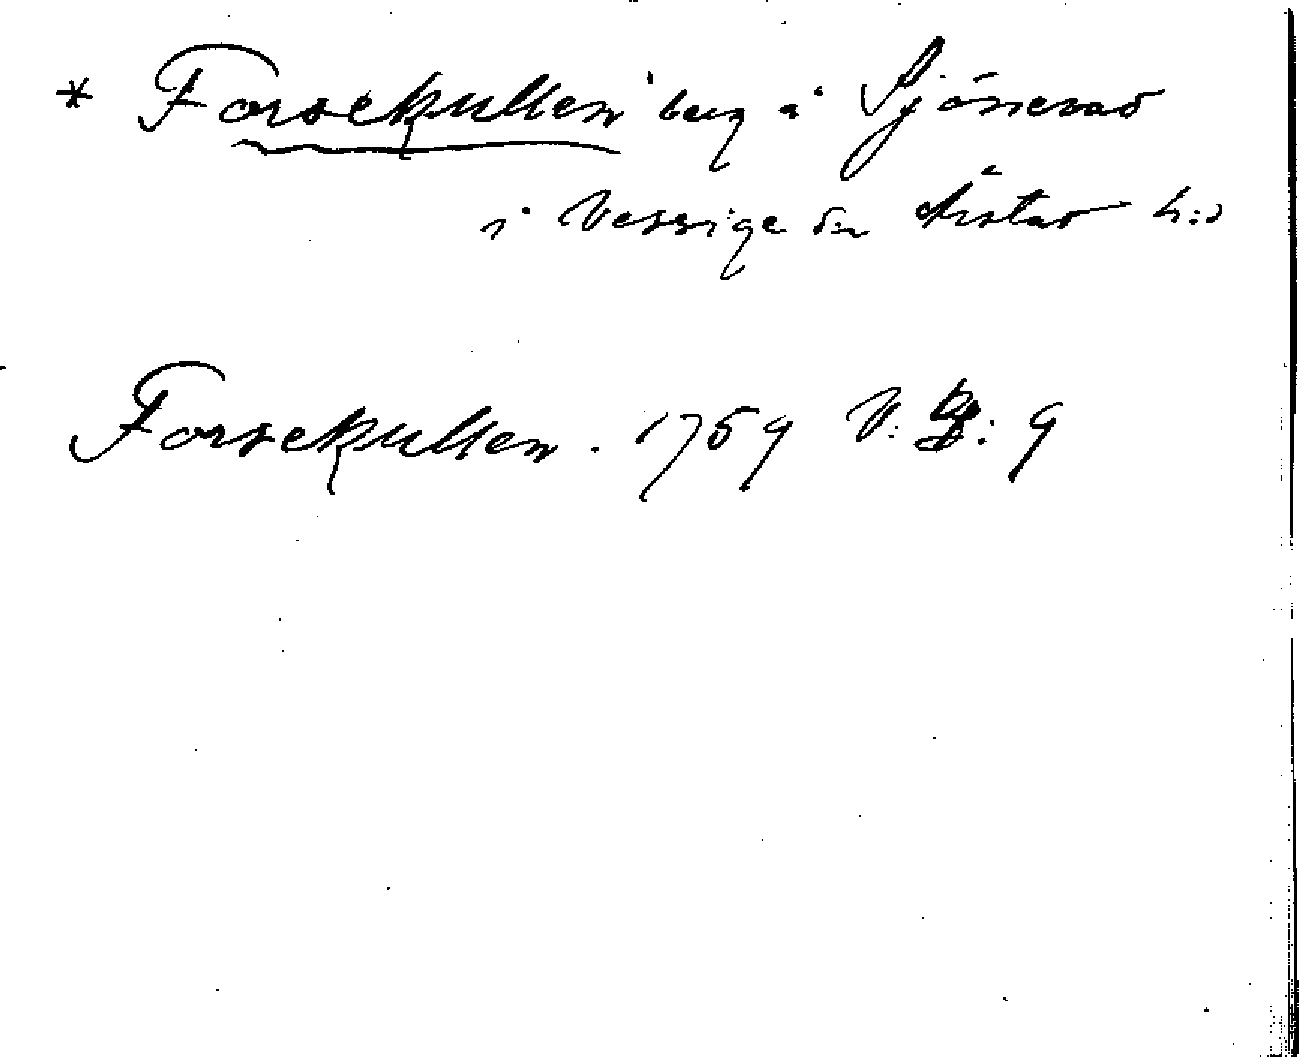 * Forsekullen berg å Sjönevad
i Vessige sn Årstad h:d
Forsekullen. 1759 V: 9